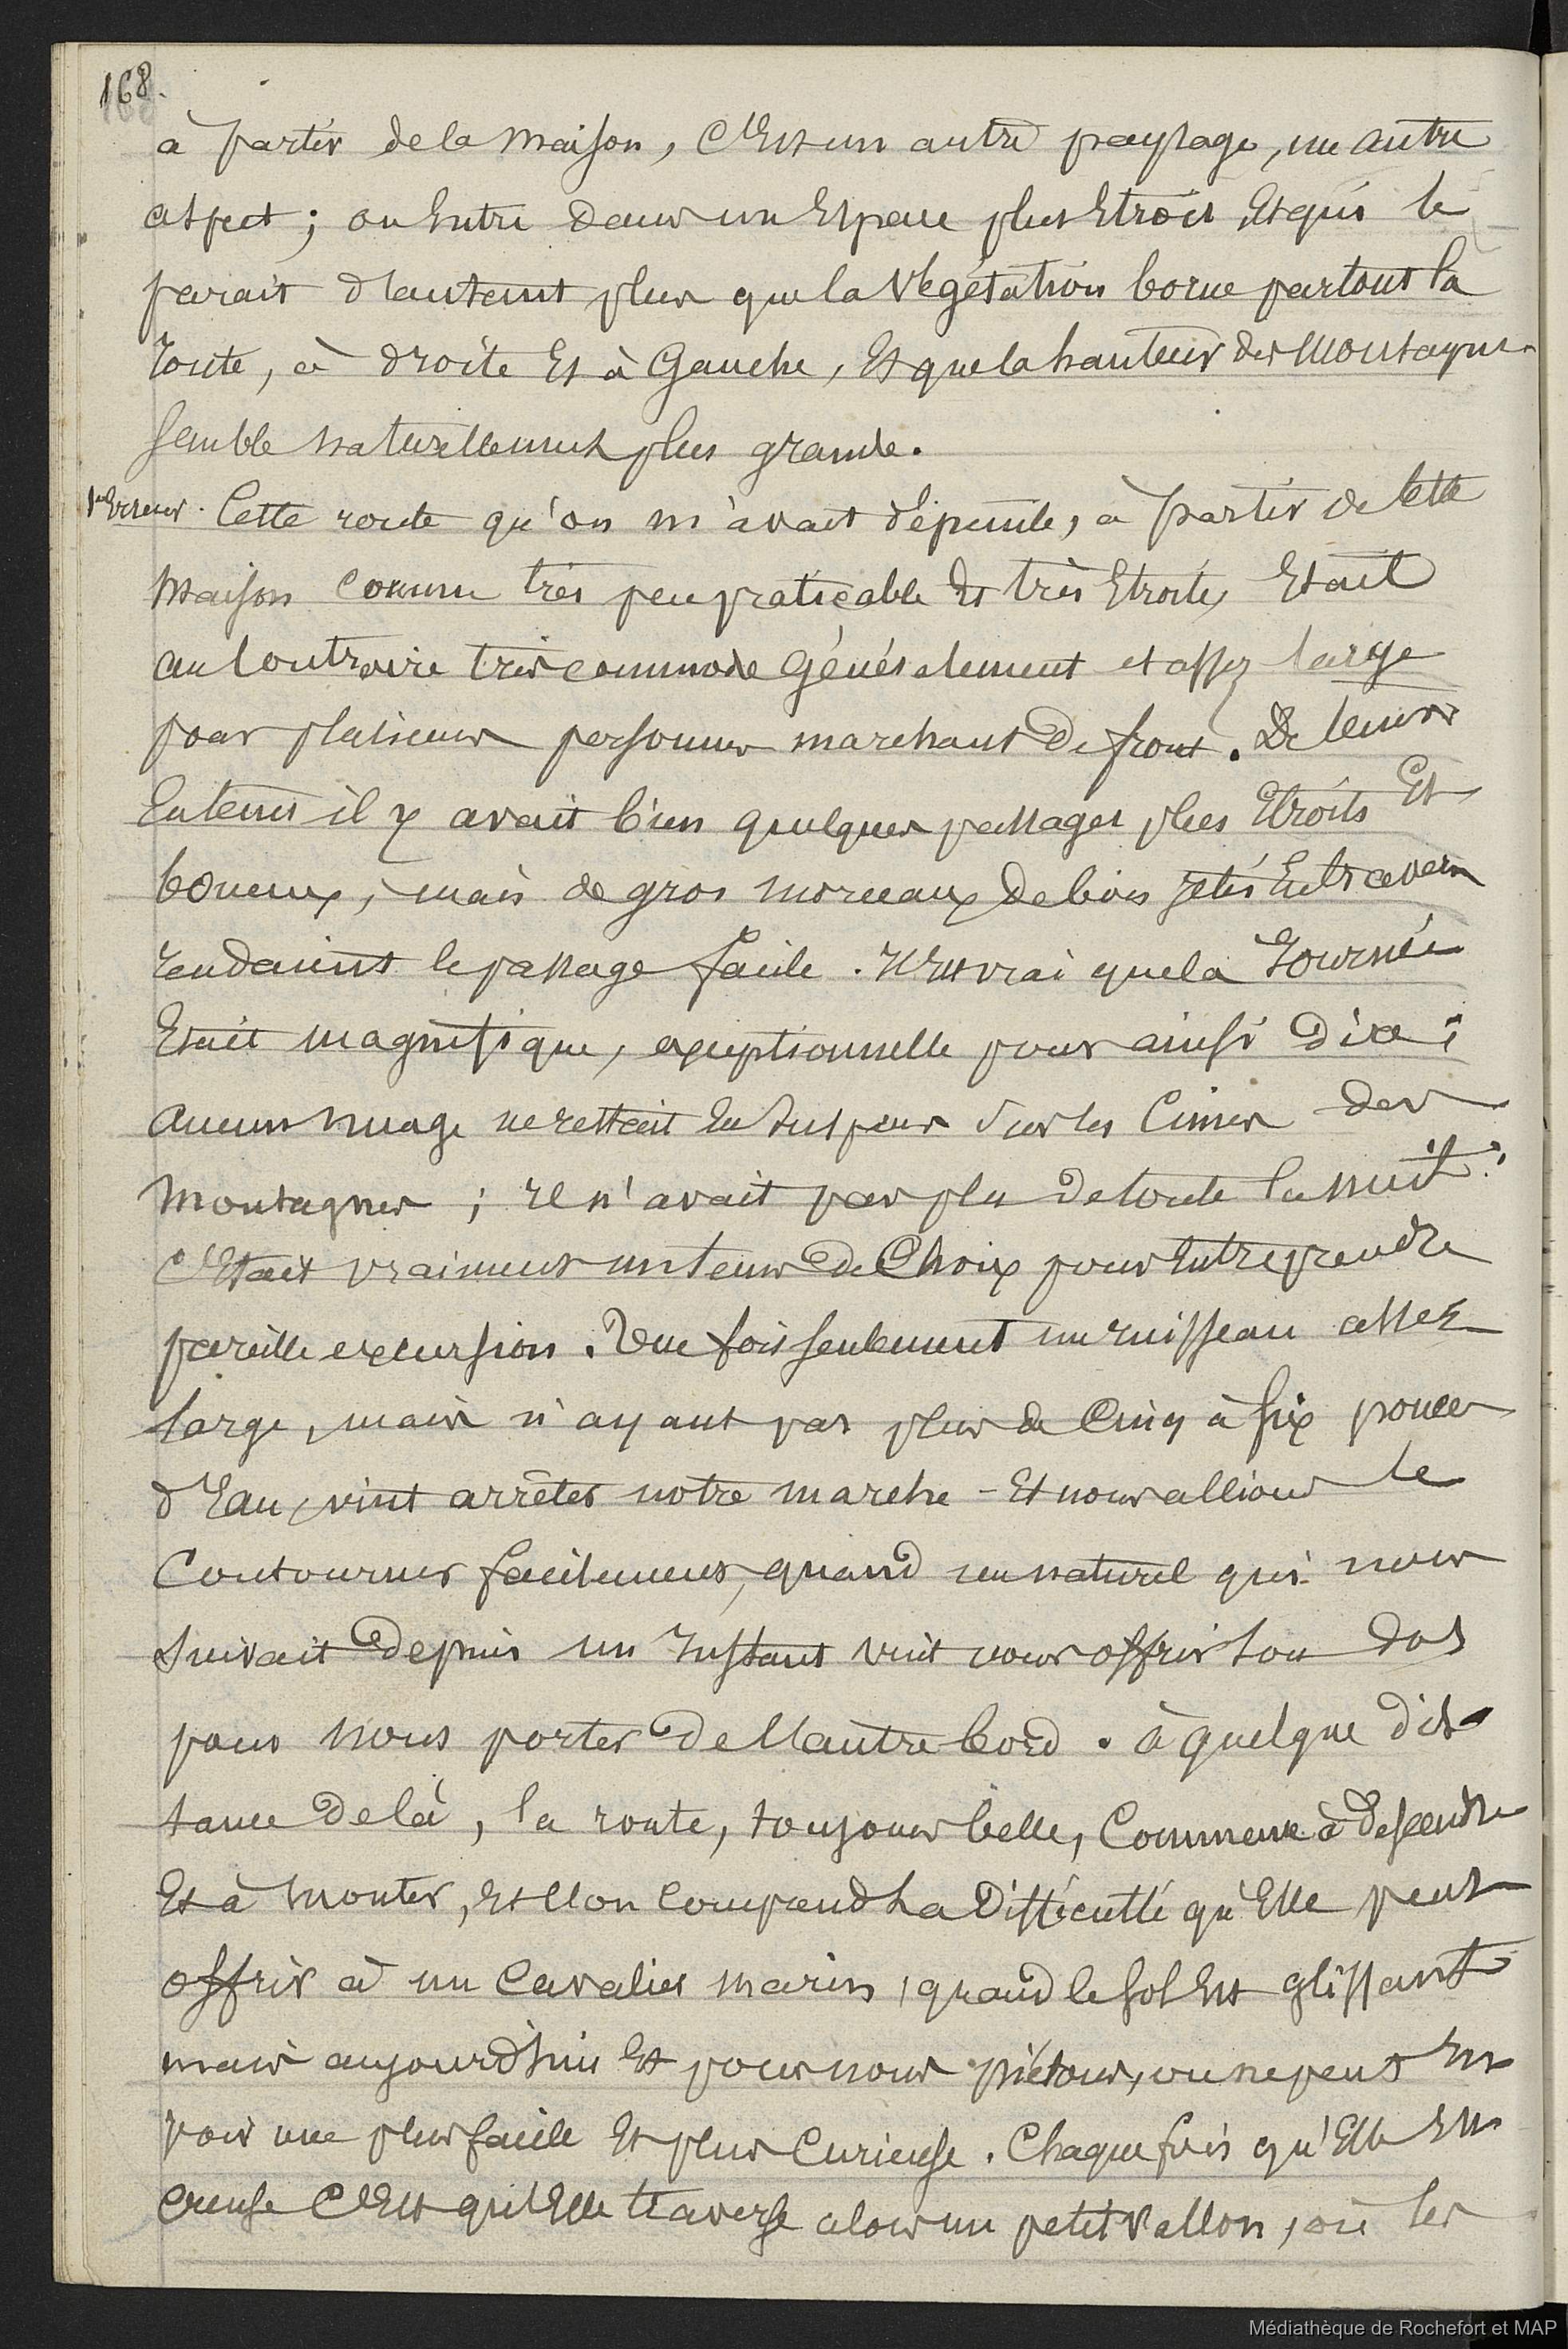 168.
à partir de la maison, c'est un autre paysage, un autre
aspect; on entre dans un espace plus étroit et qui le
parait d'autant plus que la végétation borne partout la
route, à droite et à gauche, et que la hauteur des montagnes
semble naturellement plus grande.
Cette route qu'on m'avait dépeinte, à partir de cette
maison comme très peu praticable et très étroite, était
au contraire très commode généralement et assez large
pour plusieurs personnes marchant de front. De tems
en tems il y avait bien quelques passages plus étroits et
boueux, mais de gros morceaux de bois jetés en travers
rendaient le passage facile. Il est vrai que la journée
était magnifique, exceptionnelle pour ainsi dire;
aucun nuage ne restait en suspens sur les cimes des
montagnes; il n'avait pas plu de toute la nuit:
c'était vraiment un tems de choix pour entreprendre
pareille excursion. Une fois seulement un ruisseau assez
large, mais n'ayant pas plus de cinq à six pouces
d'eau, vint arrêter notre marche - et nous allions le
contourner facilement, quand un naturel qui nous
suivait depuis un instant vint nous offrir son dos
pour nous porter de l'autre bord. à quelque dis-
tance de là, la route, toujours belle, commence à descendre
et à monter, et l'on comprend la difficulté qu'elle peut
offrir à un cavalier marin, quand le sol est glissant
mais aujourd'hui et pour nous piétons, on ne peut en
voir une plus facile et plus curieuse. Chaque fois qu'elle se
creuse c'est qu'elle traverse alors un petit vallon, où les
Médiathèque de Rochefort et MAP